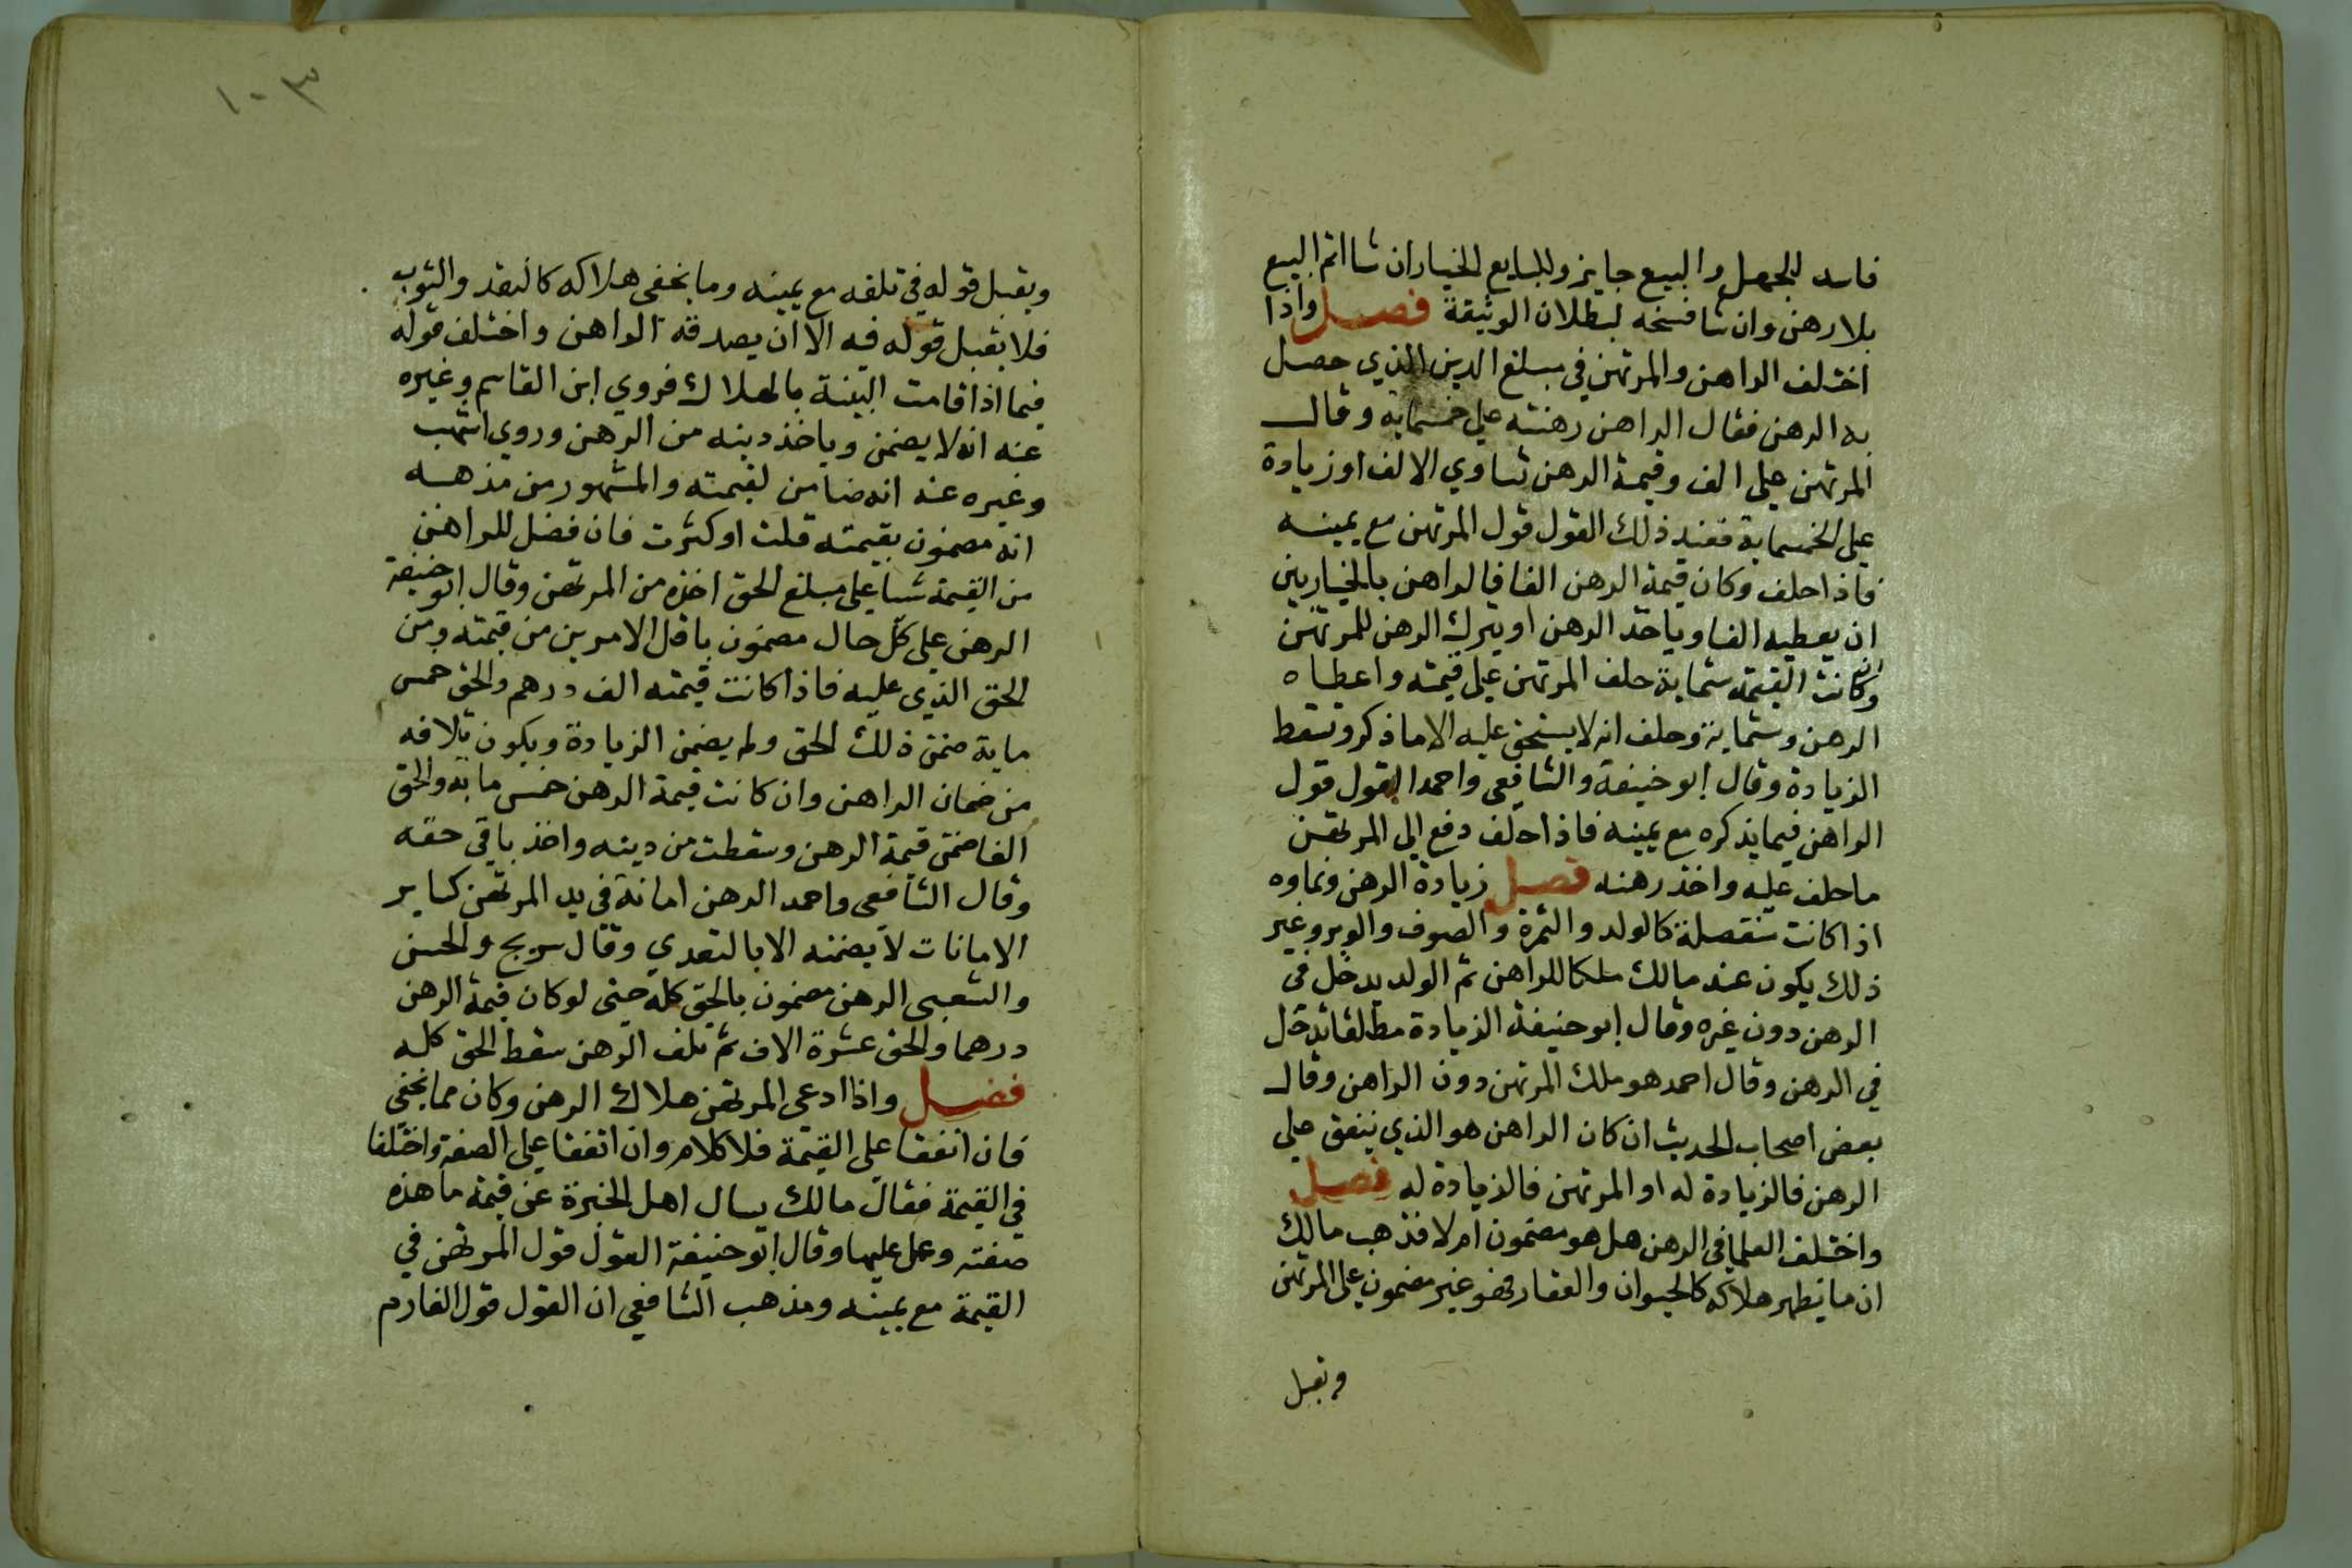 فاسد للجهل والبيع جايز وللبايع الخيار ان شا اتم البيع
بلا رهن وان شا فسخه لبطلان الوثيقة فصل واذا
اختلف الراهن والمرتهن في مبلغ الدين الذي حصل
به الرهن فقال الراهن رهنته علي خمسماية وقال
المرتهن علي الف وقيمة الرهن تساوي الالف او زيادة
علي الخمسماية فعند ذلك القول قول المرتهن مع يمينه
فاذا حلف وكان قيمة الرهن الفا فالراهن بالخيار بين
ان يعطيه الفا وياخذ الرهن او يترك الرهن للمرتهن
وان كانت القيمة ستماية حلف المرتهن علي قيمته واعطاه
الرهن وستماية وحلف انه لا يستحق عليه الا ما ذكر وتسقط
الزيادة وقال ابو حنيفة والشافعي واحمد القول قول
الراهن فيما يذكره مع يمينه فاذا حلف دفع الي المرتهن
ما حلف عليه واخذ رهنه فصل زيادة الرهن ونماوه
اذا كانت منفصلة كالولد والثمرة والصوف والوبر وغير
ذلك يكون عند مالك ملكا للراهن ثم الولد يدخل في
الرهن دون غيره وقال ابو حنيفة الزيادة مطلقا تدخل
في الرهن وقال احمد هو ملك المرتهن دون الراهن وقال
بعض اصحاب الحديث ان كان الراهن هو الذي ينفق علي
الرهن فالزيادة له او المرتهن فالزيادة له فصل
واختلف العلما في الرهن هل هو مضمون ام لا فذهب مالك
ان ما يظهر هلاكه كالحيوان والعقار فهو غير مضمون علي المرتهن
ويقبل
١٠٣
ويقبل قوله في تلفه مع يمينه وما يخفى هلاكه كالنقد والثوب
فلا يقبل قوله فيه الا ان يصدقه الراهن واختلف قوله
فيما اذا قامت البينة بالهلاك فروي ابن القاسم وغيره
عنه انه لا يضمن وياخذ دينه من الرهن وروي اشهب
وغيره عنه انه ضامن لقيمته والمشهور من مذهبه
انه مضمون بقيمته قلت او كثرت فان فضل للراهن
من القيمة شيا علي مبلغ الحق اخذه من المرتهن وقال ابو حنيفة
الرهن علي كل حال مضمون باقل الامرين من قيمته ومن
الحق الذي عليه فاذا كانت قيمته الف درهم والحق خمس
ماية ضمن ذلك الحق ولم يضمن الزيادة ويكون تلافه
من ضمان الراهن وان كانت قيمة الرهن خمس ماية والحق
الفا ضمن قيمة الرهن وسقطت من دينه واخذ باقي حقه
وقال الشافعي واحمد الرهن امانة في يد المرتهن كساير
الامانات لا يضمنه الا بالتعدي وقال سريج والحسن
والشعبي الرهن مضمون بالحق كله حتى لو كان قيمة الرهن
درهما والحق عشرة الاف ثم تلف الرهن سقط الحق كله
فصل واذا ادعي المرتهن هلاك الرهن وكان مما يخفي
فان اتفقا علي القيمة فلا كلام وان اتفقا علي الصفة واختلفا
في القيمة فقال مالك يسال اهل الخبرة عن قيمة ما هذه
صفته وعمل عليها وقال ابو حنيفة القول قول المرتهن في
القيمة مع يمينه ومذهب الشافعي ان القول قول الغارم